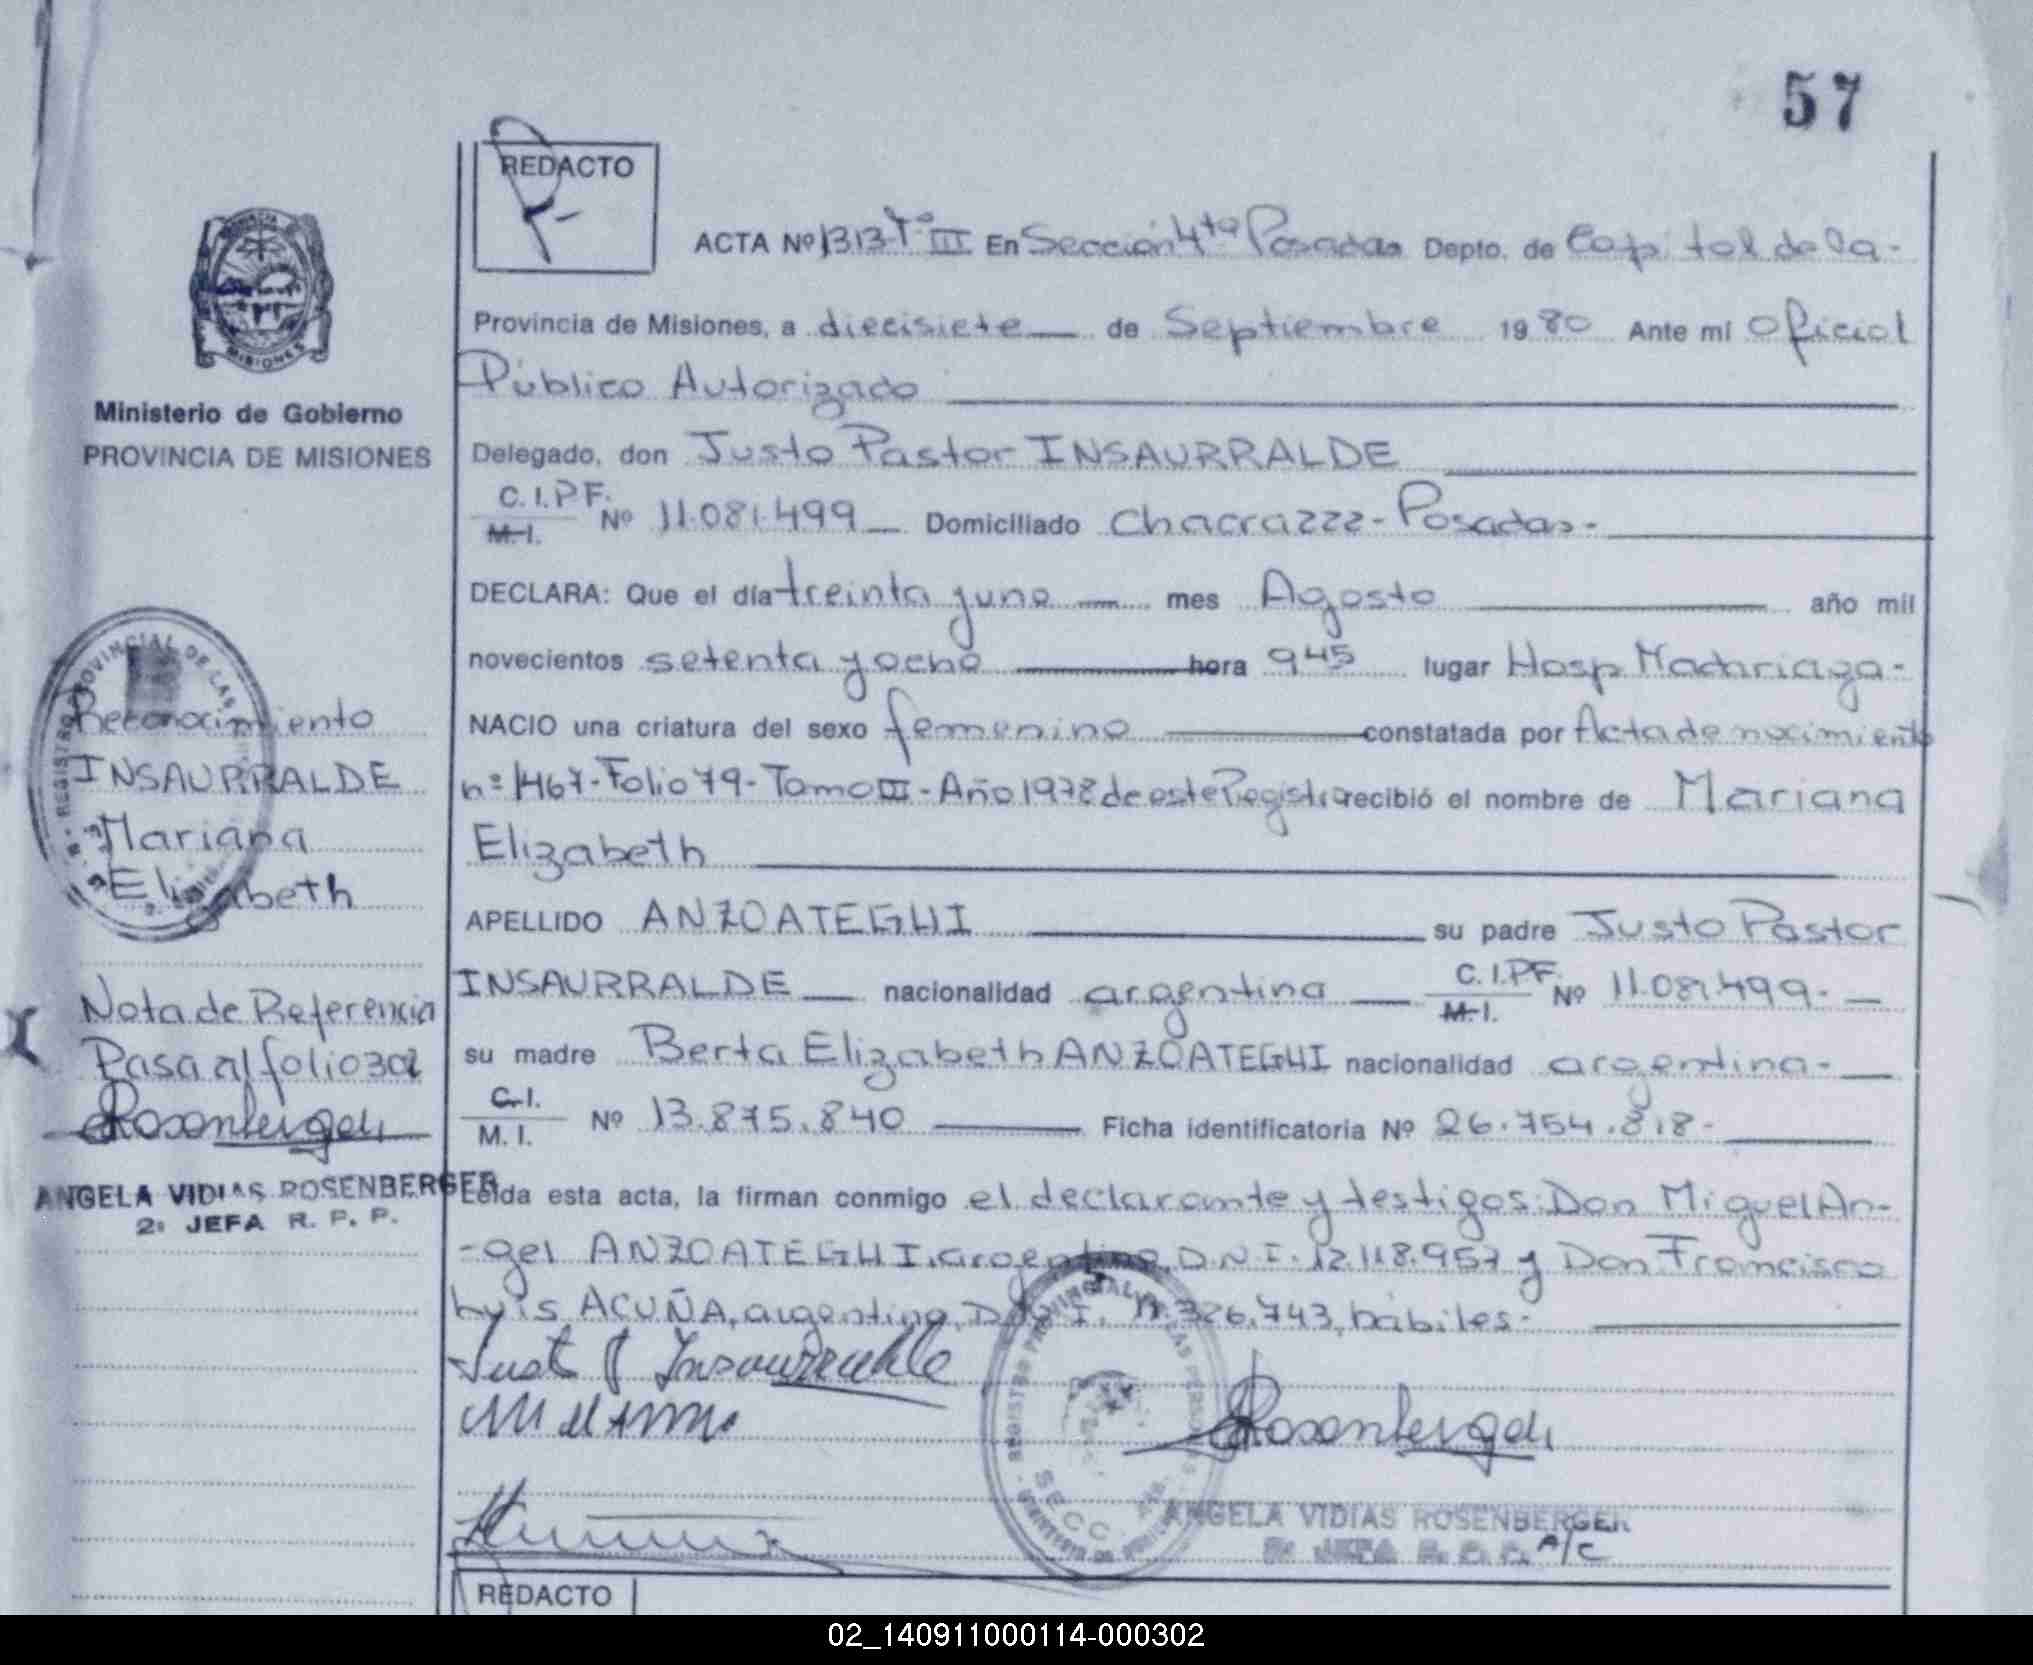 57
REDACTO
ACTA Nº 1313 Tº III En Sección 4ta Posadas Depto. de Capital de la-
Provincia de Misiones, a diecisiete de Septiembre 1980 Ante mi Oficial
Público Autorizado
Delegado, don Justo Pastor INSAURRALDE
C. I. P.F.
M. I. Nº 11.081.499 Domiciliado Chacra 222 - Posadas-
DECLARA: Que el día treinta y uno mes Agosto año mil
novecientos setenta y ocho hora 9 45 lugar Hosp Madariaga-
NACIO una criatura del sexo femenino constatada por Acta de nacimiento
nº 1467- Folio 79- Tomo III - Año 1978 de este Registro recibió el nombre de Mariana
Elizabeth
APELLIDO ANZOATEGUI su padre Justo Pastor
INSAURRALDE nacionalidad argentina C. I. P.F. M. I. Nº 11.081.499-
su madre Berta Elizabeth ANZOATEGUI nacionalidad argentina-
C. I.
M. I. Nº 13.875.840 Ficha identificatoria Nº 26.754.818-
Leída esta acta, la firman conmigo el declarante y testigos: Don Miguel An-
-gel ANZOATEGUI, argentino, D.N.I. 12.118.957 y Don Francisco
Luis ACUÑA, argentino, D.N.I. 11.326.743, hábiles-
Just P Insaurralde
Rosenberger
ANGELA VIDIAS ROSENBERGER
A/C
REDACTO
PROVINCIA
MISIONES
Ministerio de Gobierno
PROVINCIA DE MISIONES
Reconocimiento
INSAURRALDE
Mariana
Elizabeth
Nota de Referencia
Pasa al folio 302
Rosenberger
ANGELA VIDIAS ROSENBERGER
2ª JEFA R. P. P.
REGISTRO PROVINCIAL DE LAS
REGISTRO PROVINCIAL DE LAS PERSONAS
SECC. 4ta
02_140911000114-000302